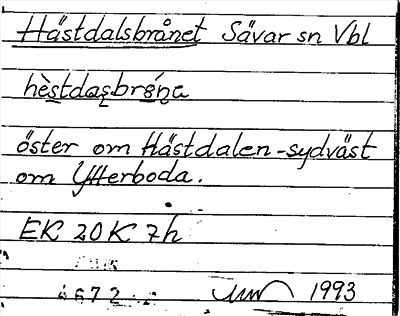 Hästdalsbrånet Sävar sn Vbl
hèstdas̩brǻn̩a
öster om Hästdalen - sydväst
om Ytterboda.
EK 20K 7h
4672
1993